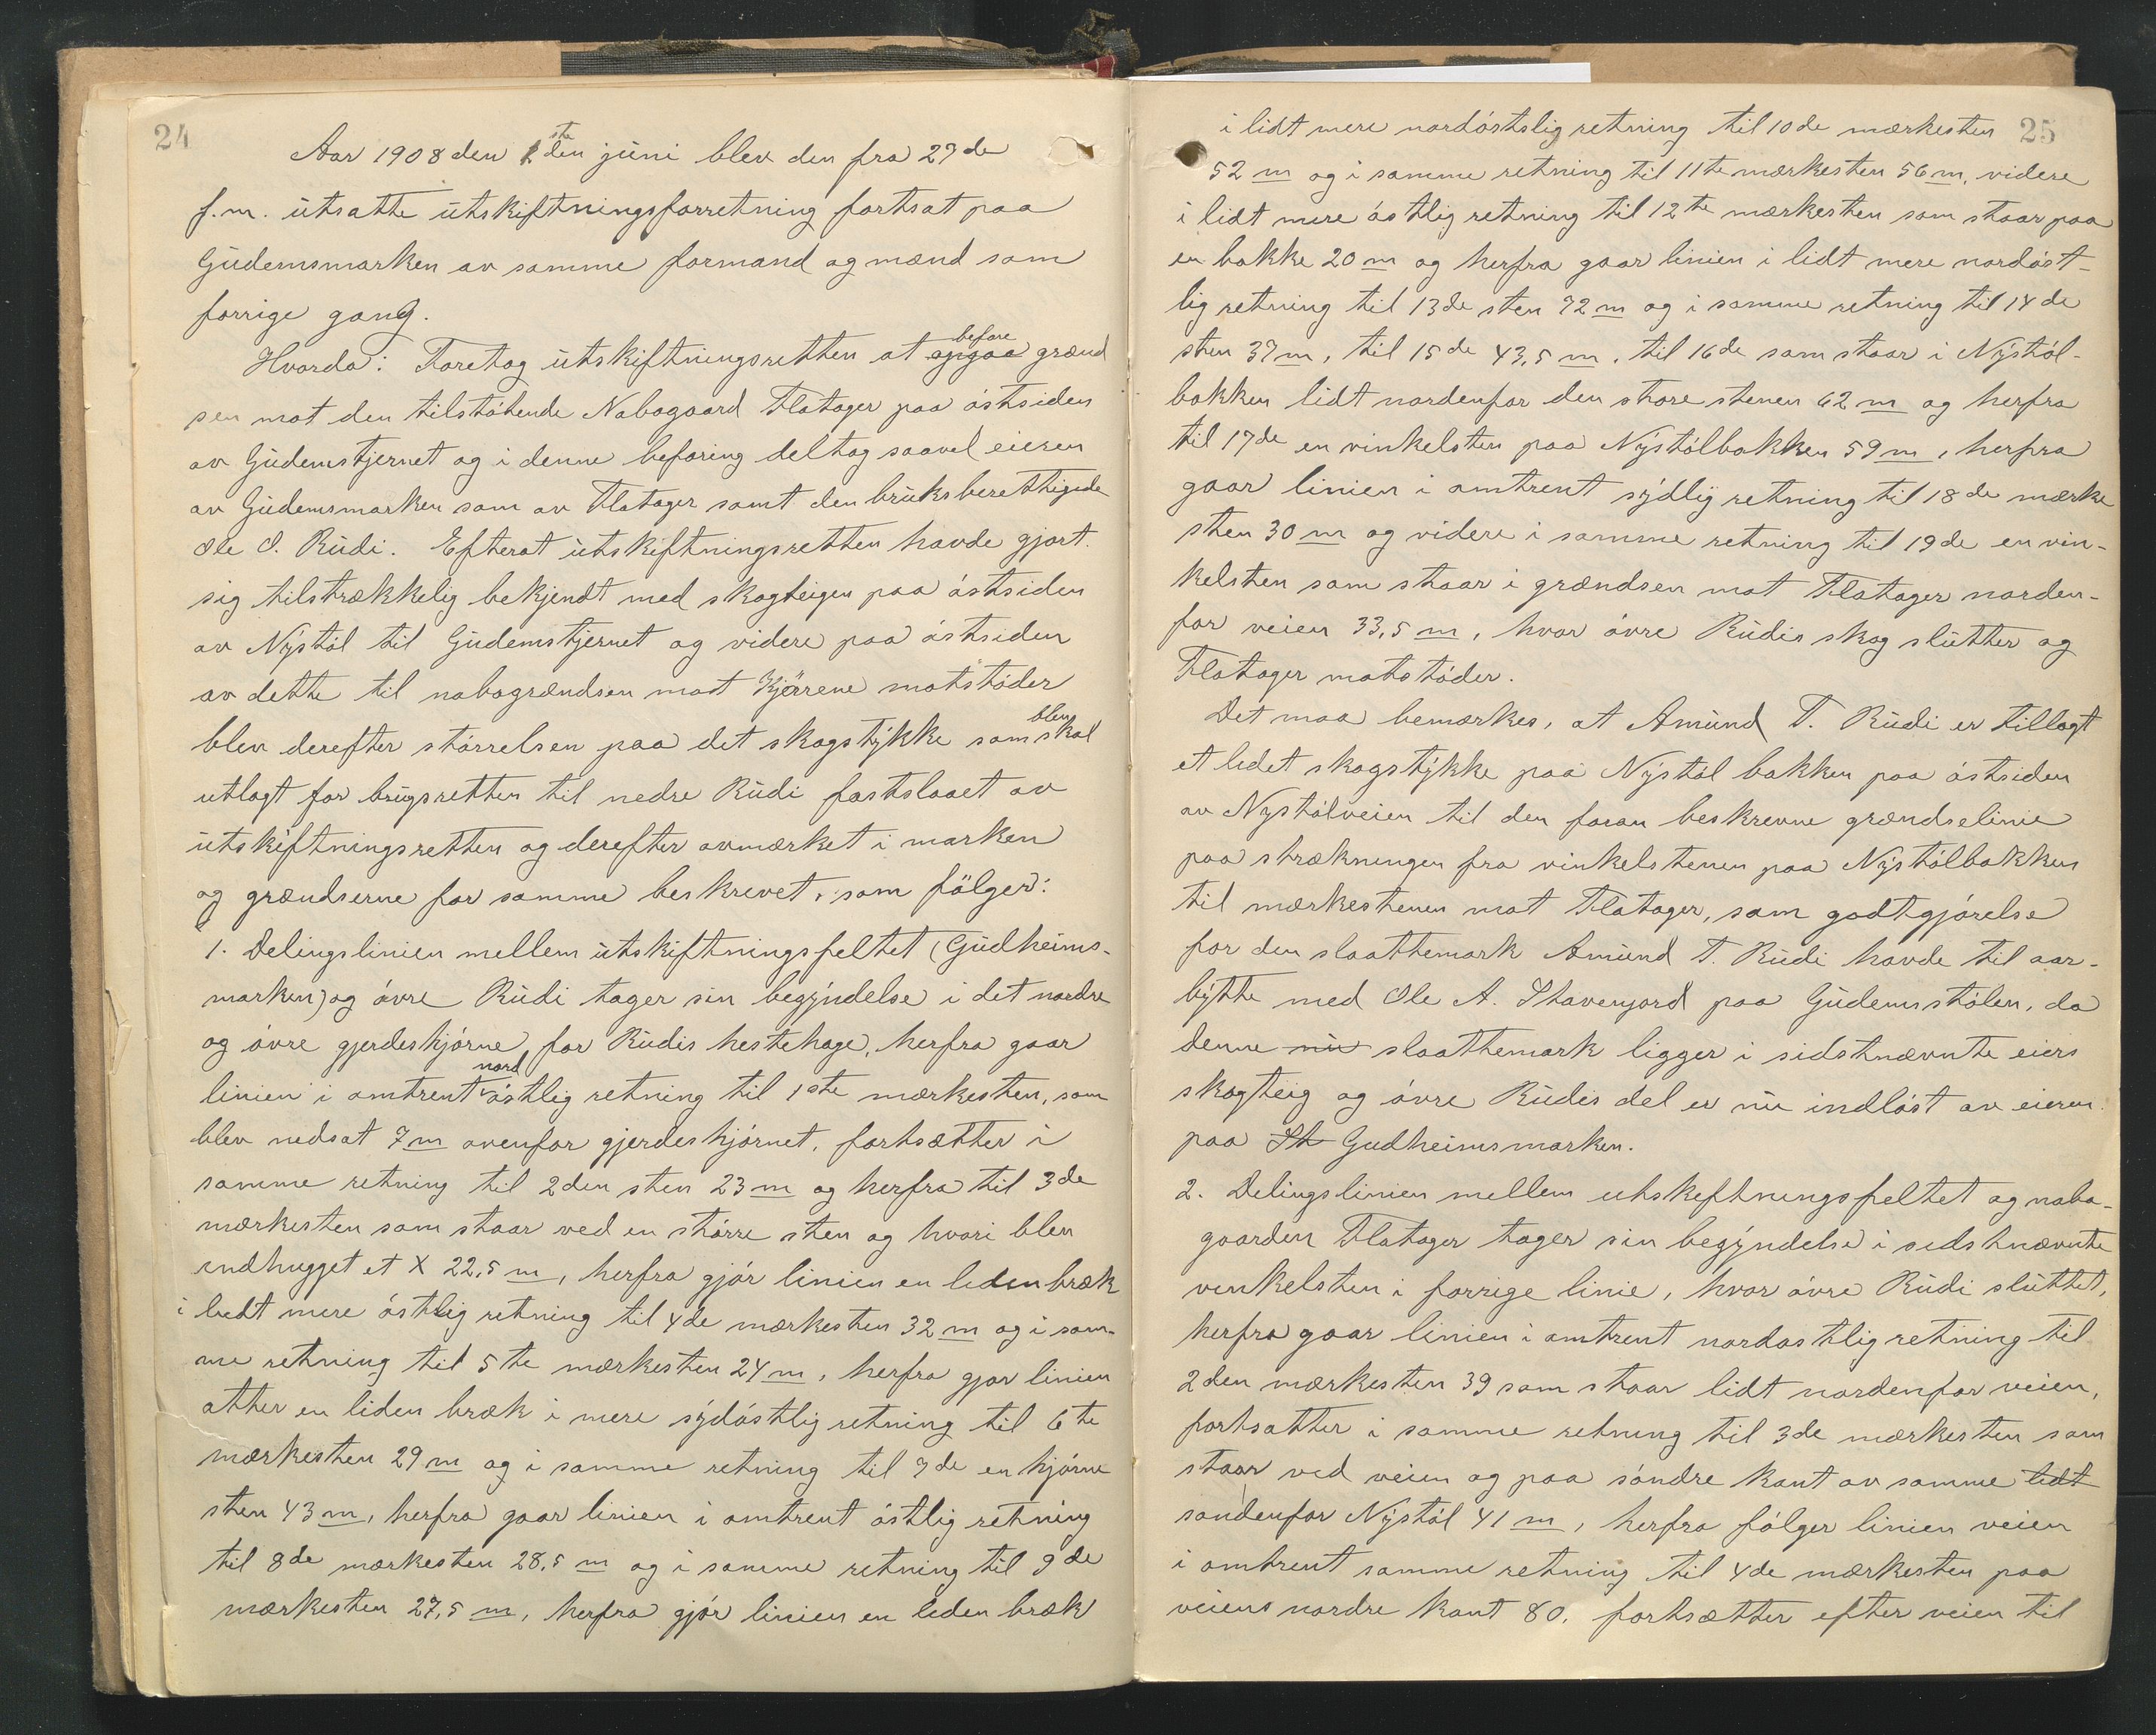 24
Aar 1908 den 1ste den juni blev den fra 27de
f.m. utsatte utskiftningsforretning fortsat paa
Gudemsmarken av samme formand og mænd som
forrige gang.
Hvorda: Foretog utskiftningsretten at opgaa befare grænd
sen mot den tilstötende Nabogaard Flatager paa östsiden
av Gudemstjernet og i denne befaring deltog saavel eieren
av Gudemsmarken som av Flatager samt den bruksberettigede
Ole O. Rudi. Efterat utskiftningsretten havde gjort
sig tilstrækkelig bekjendt med skogteigen paa östsiden
av Nystöl til Gudemstjernet og videre paa östsiden
av dette til nabogrændsen mot Kjörrene motstöder
blev derefter störrelsen paa det skogstykke som skal blev
utlagt for brugsretten til nedre Rudi fastslaaet av
utskiftningsretten og derefter avmærket i marken
og grændserne for samme beskrevet, som fölger:
1. Delingslinien mellem utskiftningsfeltet (Gudheims-
marken) og övre Rudi tager sin begyndelse i det nordre
og övre gjerdeshjörne for Rudis hestehage, herfra gaar
linien i omtrent nordöstlig retning til 1ste mærkesten, som
blev nedsat 7 m ovenfor gjerdeshjörnet, fortsætter i
samme retning til 2den sten 23 m og herfra til 3de
mærkesten som staar ved en större sten og hvori blev
indhugget et X 22,5 m, herfra gjör linien en liden bræk
i lidt mere östlig retning til 4de mærkesten 32 m og i sam-
me retning til 5te mærkesten 24 m, herfra gjør linien
atter en liden bræk i mere sydöstlig retning til 6te
mærkesten 29 m og i samme retning til 7de en hjörne
sten 43 m, herfra gaar linien i omtrent östlig retning
til 8de mærkesten 28,5 m og i samme retning til 9de
mærkesten 27,5 m, herfra gjör linien en liden bræk
25
i lidt mere nordöstslig retning til 10de mærkesten
52 m og i samme retning til 11te mærkesten 56 m, videre
i lidt mere östlig retning til 12te mærkesten som staar paa
en bakke 20 m og herfra gaar linien i lidt mere nordöst-
lig retning til 13de sten 72 m og i samme retning til 14de
sten 37 m, til 15de 43,5 m, til 16de som staar i Nystöl-
bakken lidt nordenfor den store stenen 62 m og herfra
til 17de en vinkelsten paa Nystölbakken 59 m, herfra
gaar linien i omtrent sydlig retning til 18de mærke
sten 30 m og videre i samme retning til 19de en vin-
kelsten som staar i grændsen mot Flatager norden-
for veien 33,5 m, hvor övre Rudis skog slutter og
Flatager motstöder.
Det maa bemærkes, at Amund T. Rudi er tillagt
et lidet skogstykke paa Nystöl bakken paa östsiden
av Nystölveien til den foran beskrevne grændselinie
paa strækningen fra vinkelstenen paa Nystölbakken
til mærkestenen mot Flatager, som godtgjörelse
for den slaattemark Amund T. Rudi havde til aar-
bytte med Ole A. Stavenjord paa Gudemsstölen, da
denne nu slaattemark ligger i sidstnævnte eiers
skogteig og övre Rudis del er nu indlöst av eieren
paa St Gudheimsmarken.
2. Delingslinien mellem utskiftningsfeltet og nabo-
gaarden Flatager tager sin begyndelse i sidstnævnte
vinkelsten i forrige linie, hvor övre Rudi sluttet,
herfra gaar linien i omtrent nordostlig retning til
2den mærkesten 39 som staar lidt nordenfor veien,
fortsatter i samme retning til 3de mærkesten som
staar ved veien og paa söndre kant av samme lidt
sondenfor Nystöl 41 m, herfra fölger linien veien
i omtrent samme retning til 4de mærkesten paa
veiens nordre kant 80, fortsætter efter veien til